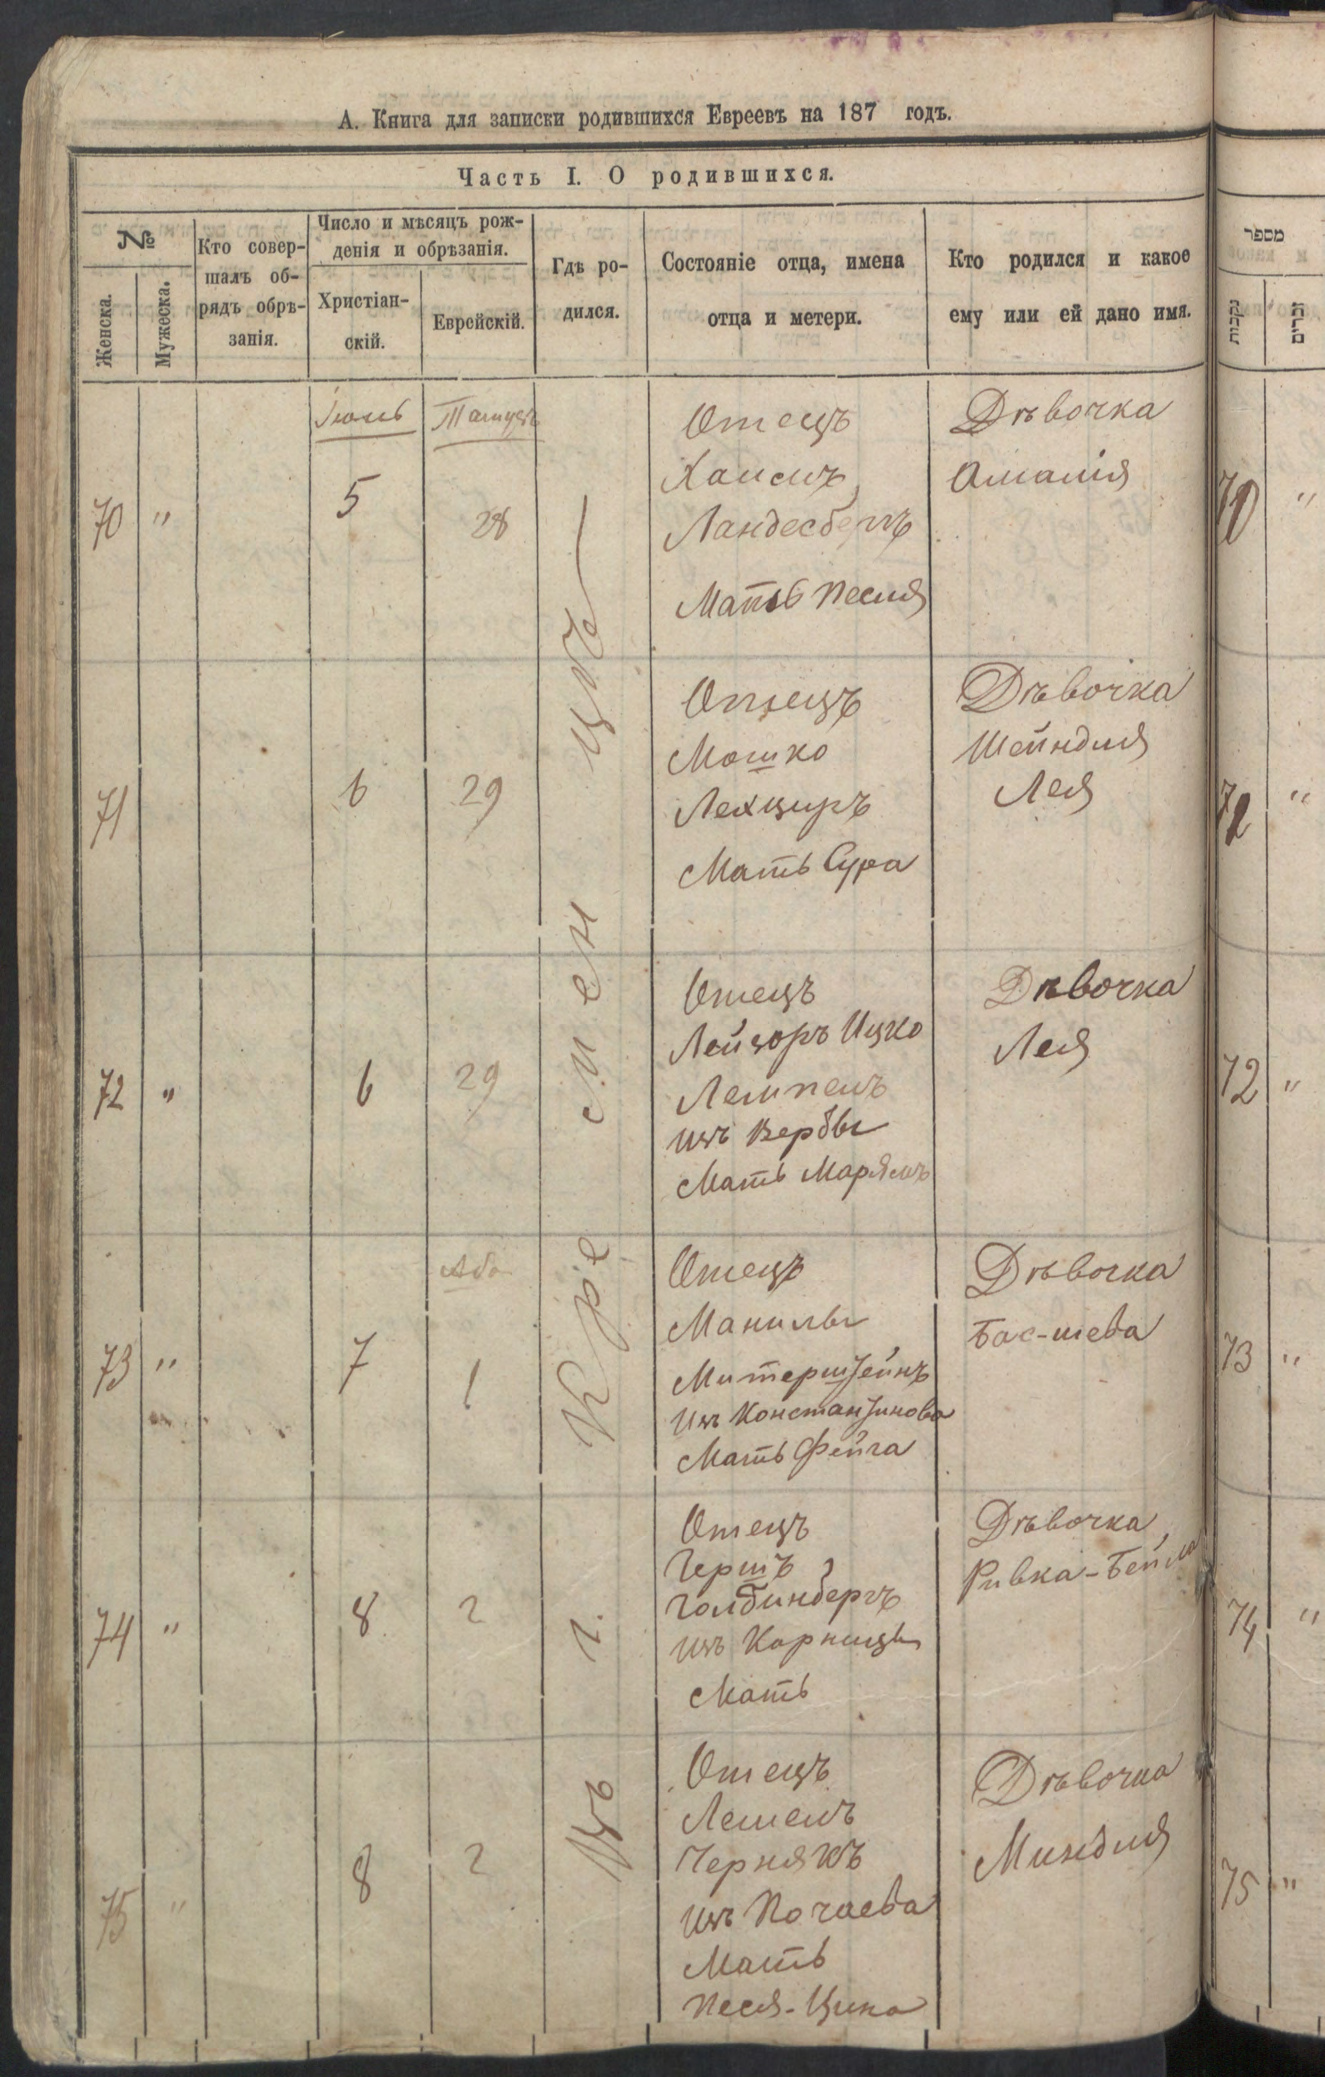 А. Книга для записки родившихся Евреевъ на 187 годъ.
Часть I. О родившихся.
№
Женска.
Мужеска.
Кто совер-
шалъ об-
рядъ обрѣ-
занія.
Число и мѣсяцъ рож-
денія и обрѣзанія.
Христіан-
скій.
Еврейскій.
Гдѣ ро-
дился.
Состояніе отца, имена
отца и метери.
Кто родился и какое
ему или ей дано имя.
מספר
נקבות
זכרים
Въ г. Кременцѣ
70 "
Іюль
5
Тамузъ
28
Отецъ
Хаимъ
Ландесбергъ
Мать Песля
Дѣвочка
Амалія
70 "
71
6
29
Отецъ
Мошко
Лехциръ
Мать Сура
Дѣвочка
Шейндля
Лея
71 "
72 "
6
29
Отецъ
Лейзоръ Ицко
Лемпель
изъ Вербы
Мать Марямъ
Дѣвочка
Лея
72 "
73 "
7
Аба
1
Отецъ
Манилы
Митерштейнъ
изъ Константинова
Мать Фейга
Дѣвочка
Бас-шева
73 "
74 "
8
2
Отецъ
Гершъ
Голдинбергъ
изъ Карницы
Мать
Дѣвочка
Ривка-Бейла
74 "
75 "
8
2
Отецъ
Лемелъ
Чернякъ
изъ Почаева
Мать
Песя-Цина
Дѣвочка
Миндля
75 "